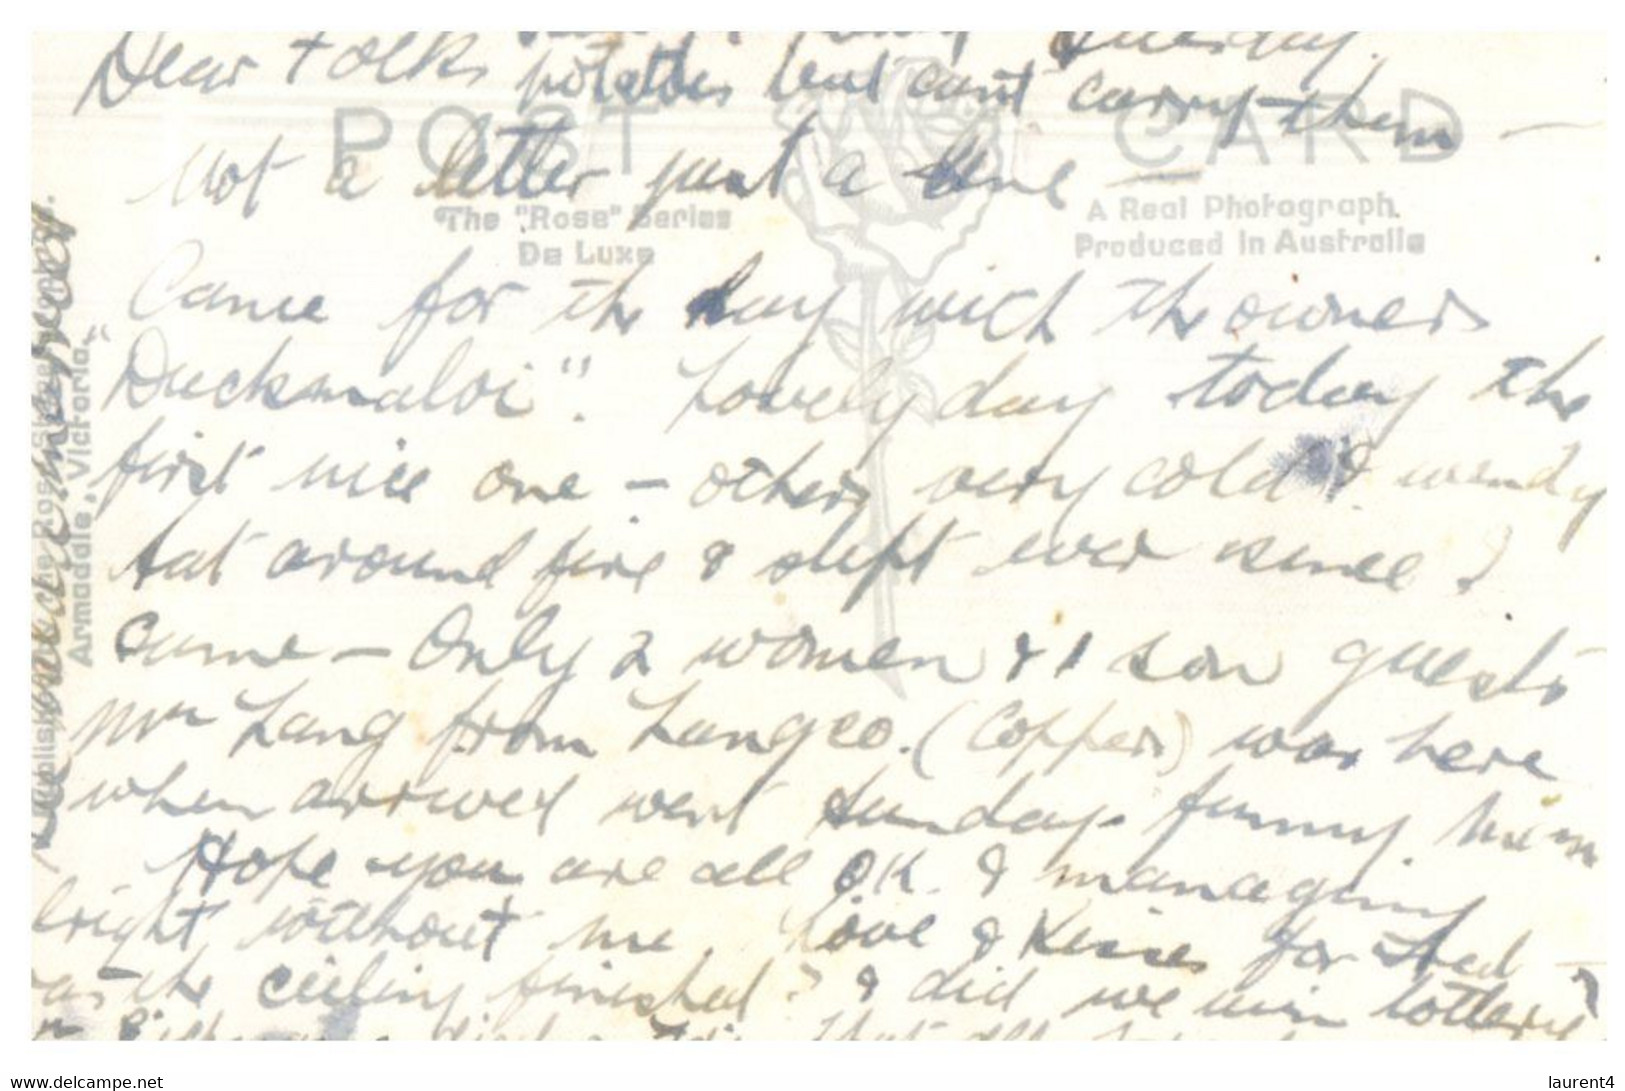 Tuesday.
Dear Folks potatoes but can't carry them —
POST CARD
Not a letter just a line —
The "Rose" Series
De Luxe
A Real Photograph
Produced in Australia
Came for the day with the owners
"Duckmaloi". Lovely day today the
first nice one — others very cold & windy
Sat around fire & slept ever since I
came — Only 2 women & 1 son guests
Mr Lang from Langco. (Coppers) was here
when arrived went Sunday. funny
Hope you are all O.K. & managing
alright without me. Love & Kisses for
the ceiling finished? & did we win lottery?
Armadale, Victoria.
www.delcampe.net
laurent4